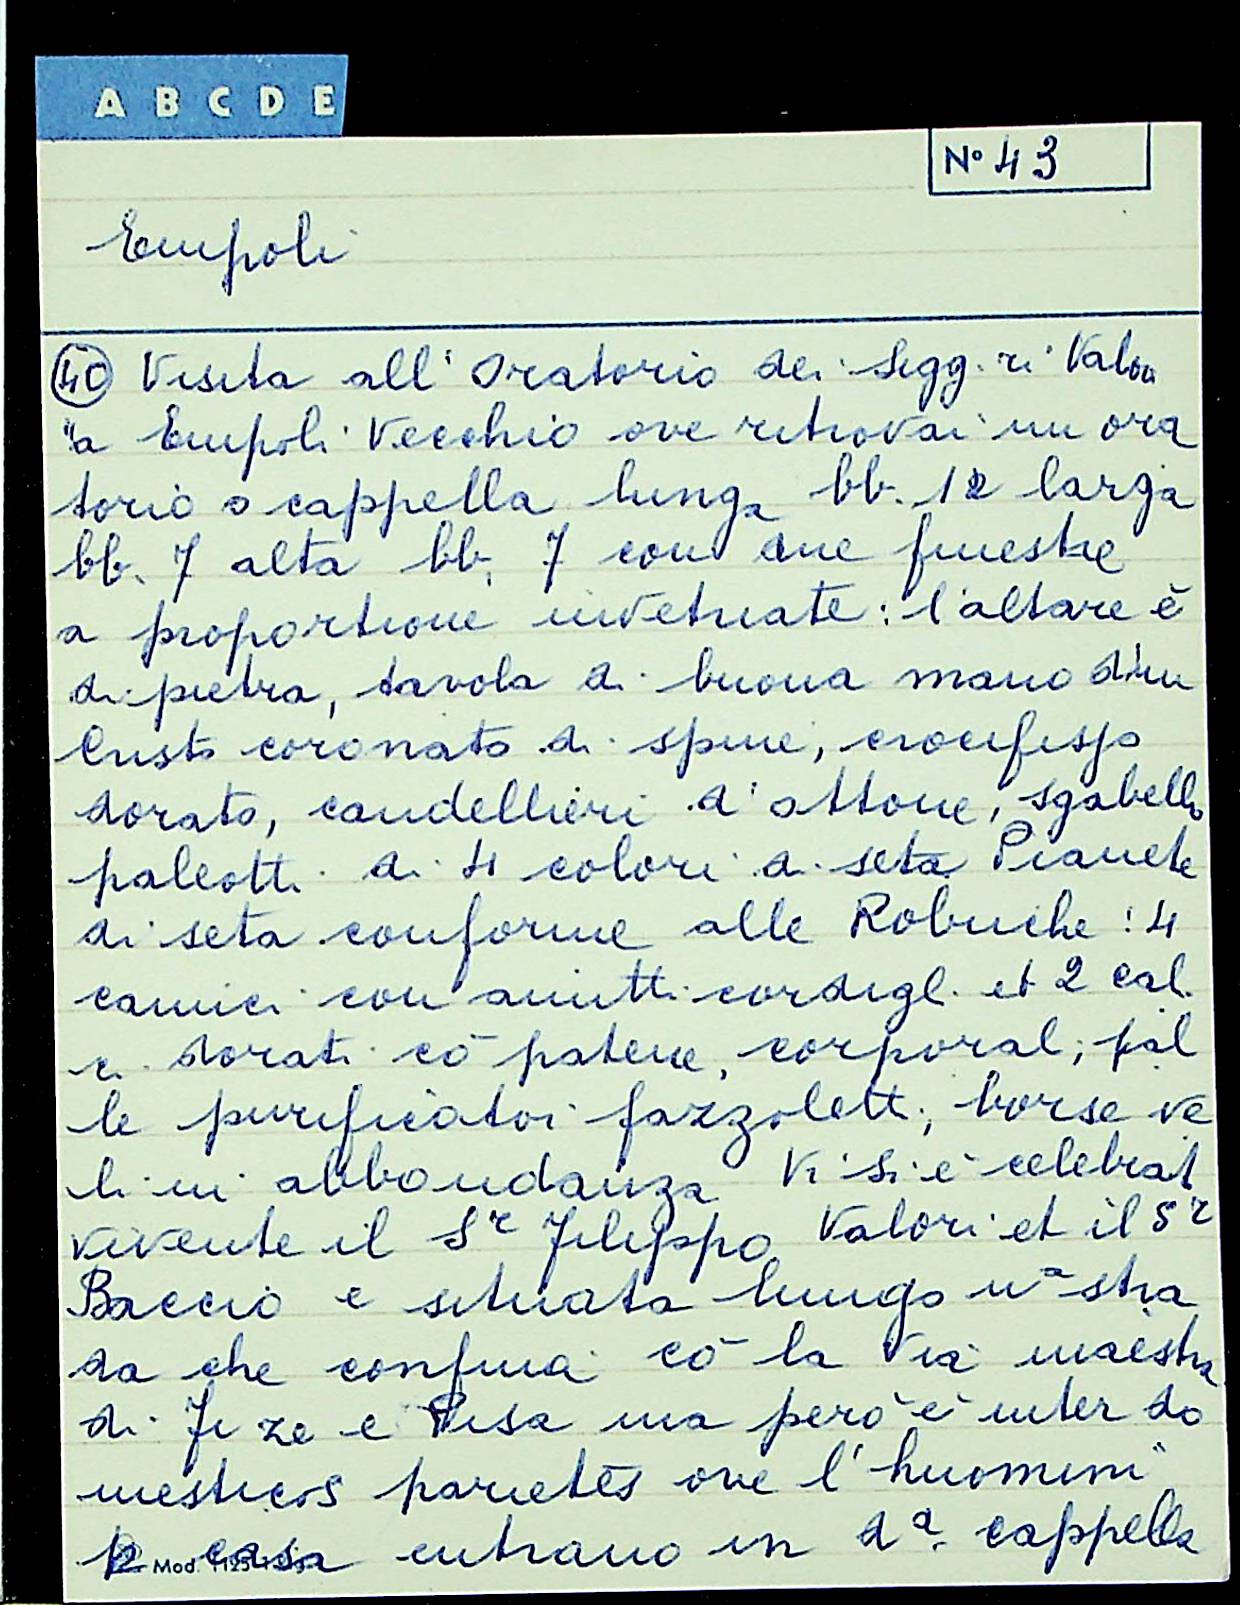 A B C D E
N° 43
Empoli
40 Visita all'Oratorio dei Sigg.ri Valori
"a Empoli Vecchio ove ritrovai un ora
torio o cappella lunga bb. 12 larga
bb. 7 alta bb. 7 con due finestre
a proportione invetriate: l'altare è
di pietra, tavola di buona mano d'un
Cristo coronato di spine, crocifisso
dorato, candellieri d'ottone, sgabello
paleotti di 4 colori di seta Pianete
di seta conforme alle Robriche: 4
camici con amitti cordigl. et 2 cal.
ci dorati cō patene, corporal, pal
le purificatoi fazzoletti, borse ve
li in abbondanza Vi si è celebrat
vivente il Sr Filippo Valori et il Sr
Baccio e situata lungo na stra
da che confina cō la Via maestra
di Fi ze e Pisa ma però è inter do
mesticos parietēs ove l'huomini"
p casa entrano in da. cappella
Mod.